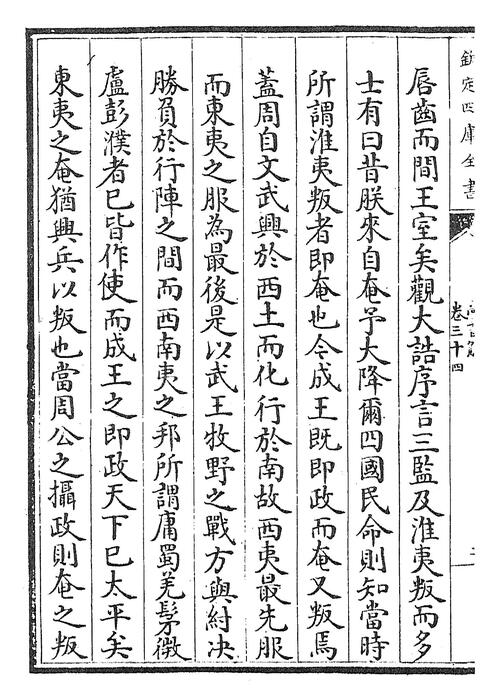 欽定四庫全書
卷三十四
唇齒而間王室矣觀大誥序言三監及淮夷叛而多
士有曰昔朕來自奄予大降爾四國民命則知當時
所謂淮夷叛者即奄也今成王既即政而奄又叛焉
蓋周自文武興於西土而化行於南故西夷最先服
而東夷之服為最後是以武王牧野之戰方與紂决
勝負於行陣之間而西南夷之邦所謂庸蜀羌髳微
盧彭濮者已皆作使而成王之即政天下已太平矣
東夷之奄猶興兵以叛也當周公之攝政則奄之叛